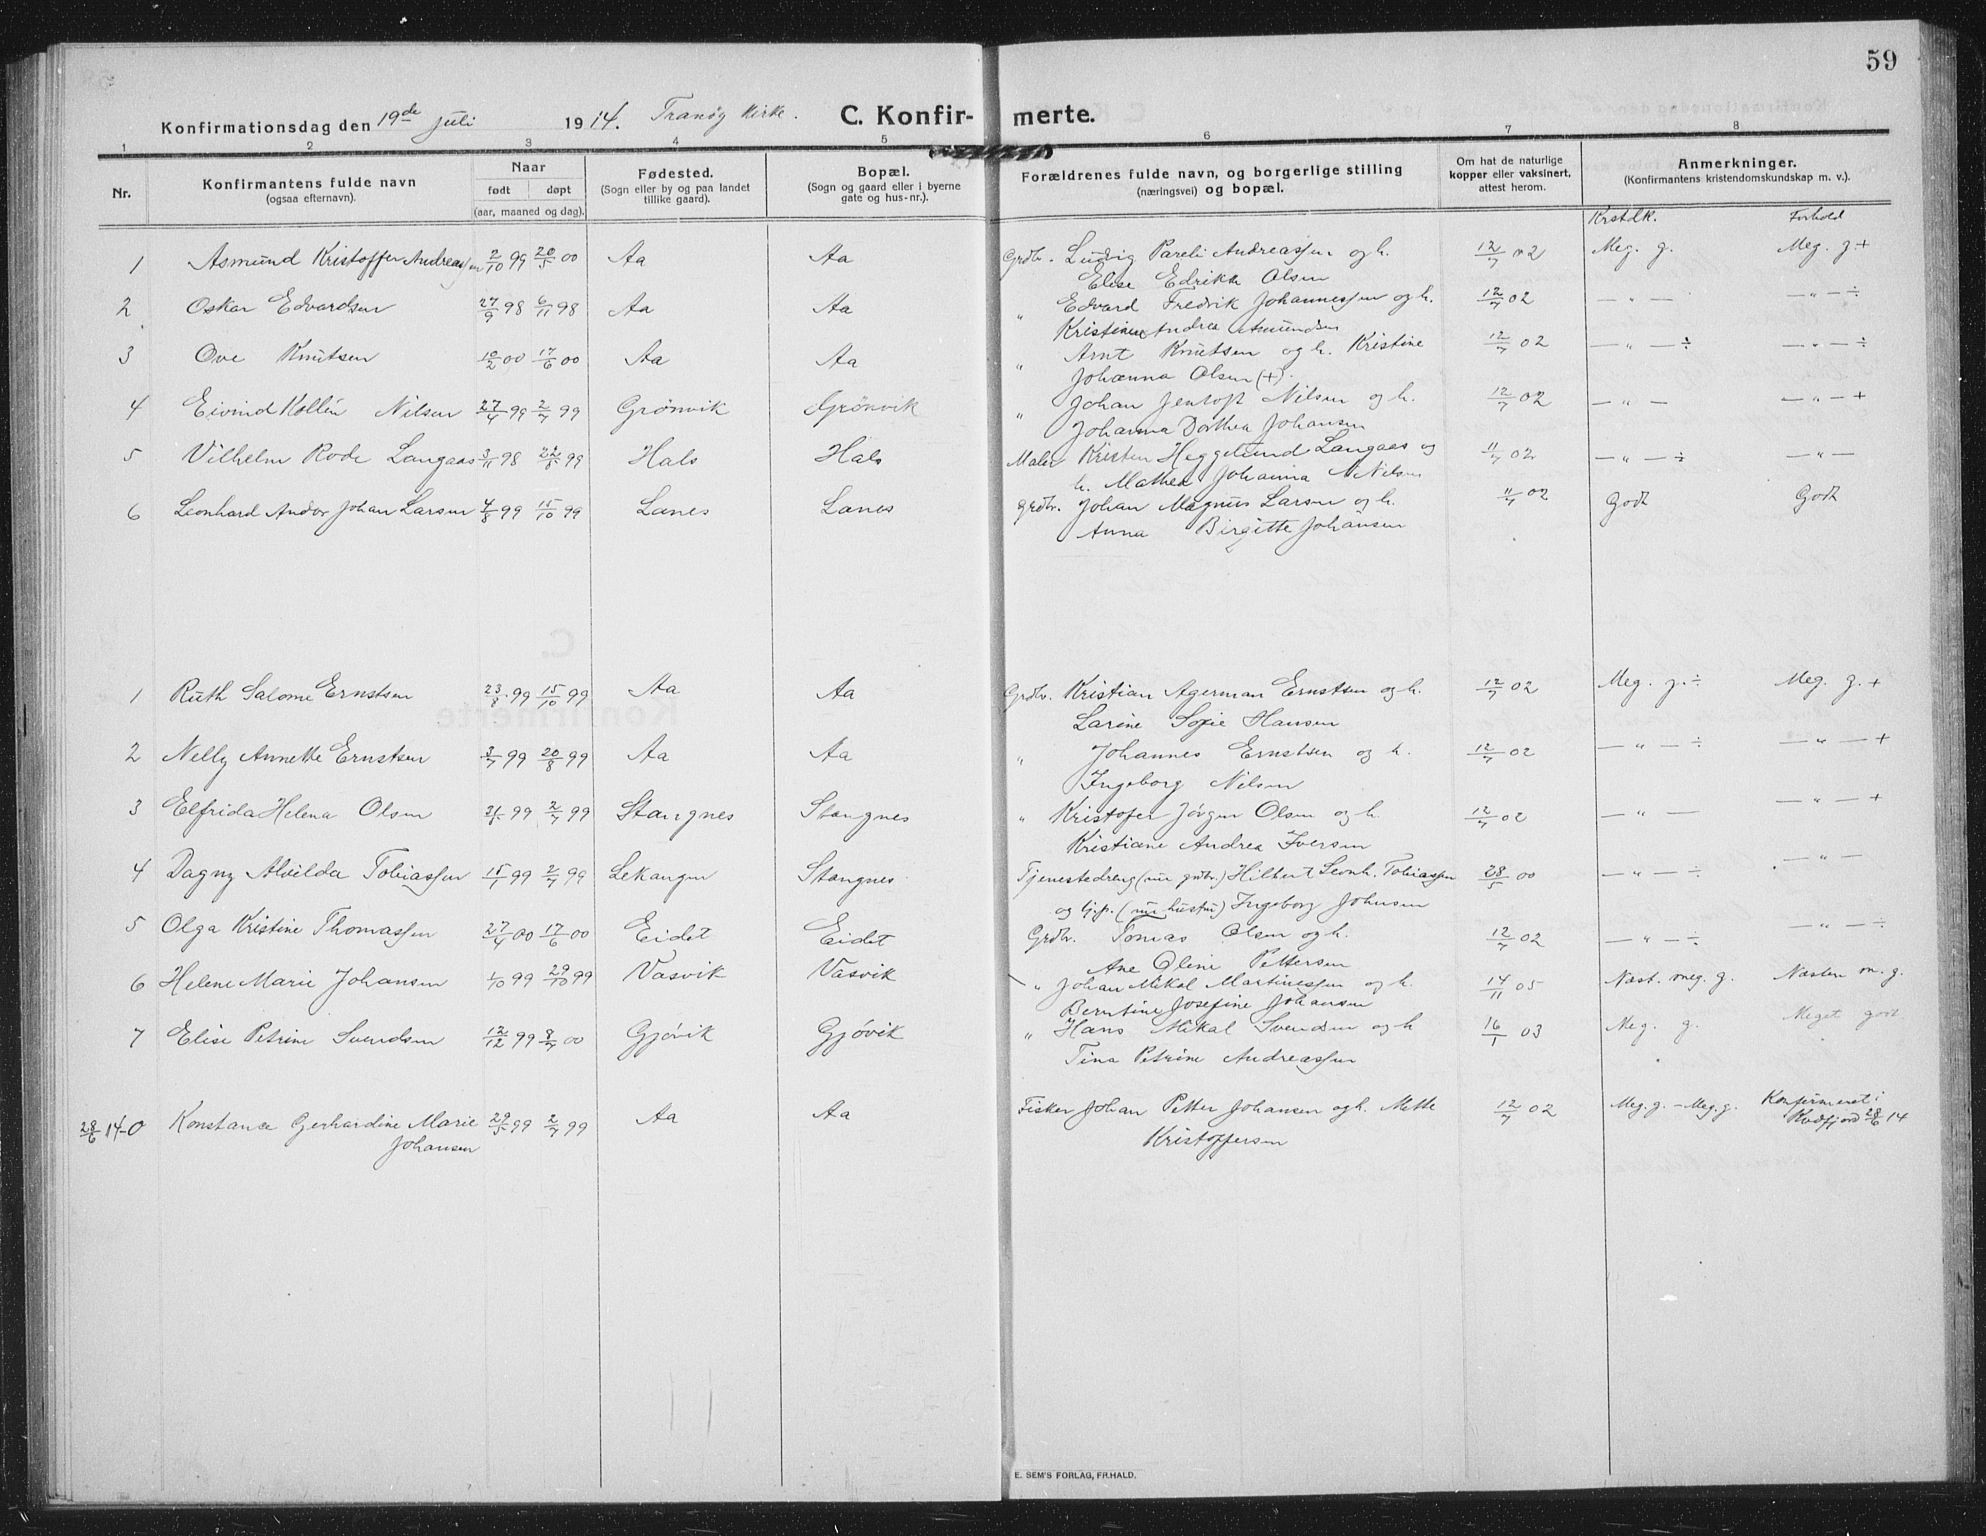 59
Konfirmationsdag den 19de juli 1914. Tranøy kirke. C. Konfir- merte.
1 2 3 4 5 6 7 8
Nr. Konfirmantens fulde navn (ogsaa efternavn). Naar født døpt (aar, maaned og dag). Fødested. (Sogn eller by og paa landet tillike gaard). Bopæl. (Sogn og gaard eller i byerne gate og hus-nr.). Forældrenes fulde navn, og borgerlige stilling (næringsvei) og bopæl. Om hat de naturlige kopper eller vaksinert, attest herom. Anmerkninger. (Konfirmantens kristendomskundskap m. v.).
Krstdk. Forhold
1 Asmund Kristoffer Andreassen 2/10 99 20/5 00 Aa Aa Grdbr. Ludvig Pareli Andreassen og h. 12/7 02 Meg. g. Meg. g +
Elise Edrikke Olsen
2 Oskar Edvardsen 27/9 98 6/11 98 Aa Aa " Edvard Fredrik Johannessen og h. 12/7 02 — " — — " — ÷
Kristine Andrea Asmundsen
3 Ove Knutsen 10/2 00 17/6 00 Aa Aa " Arnt Knutsen og h. Kristine 12/7 02 — " — ÷ — " — ÷
Johanna Olsen (+).
4 Eivind Kollén Nilsen 27/4 99 2/7 99 Grönvik Grönvik " Johan Jentoft Nilsen og h. 12/7 02 — " — — " — +
Johanna Dorthea Johansen
5 Vilhelm Rode Langaas 3/11 98 22/5 99 Hals Hals Maler Kristen Heggelund Langaas og 11/7 02 — " — ÷ — " —
h. Mathea Johanna Nilsen
6 Leonhard Andor Johan Larsen 4/8 99 15/10 99 Lanes Lanes grdbr. Johan Magnus Larsen og h. 11/7 02 Godt Godt
Anna Birgitte Johansen
1 Ruth Salome Ernstsen 23/8 99 15/10 99 Aa Aa Grdbr. Kristian Agerman Ernstsen og h. 12/7 02 Meg. g. ÷ Meg. g. +
Larine Sofie Hansen
2 Nelly Annette Ernstsen 3/7 99 20/8 99 Aa Aa " Johannes Ernstsen og h. 12/7 02 — " — ÷ — " — +
Ingeborg Nilsen
3 Elfrida Helena Olsen 99 2/7 99 Stangnes Stangnes " Kristofer Jörgen Olsen og h. 12/7 02 — " — — " — +
Kristiane Andrea Iversen
4 Dagny Alvilda Tobiassen 15/1 99 2/7 99 Lekangen Stangnes Tjenestedreng (nu grdbr.) Hilbert Leonh. Tobiassen 28/5 00 — " — ÷ — " —
og tjp. (nu hustru) Ingeborg Johnsen
5 Olga Kristine Thomassen 27/4 00 17/6 00 Eidet Eidet Grdbr. Tomas Olsen og h. 12/7 02 — " — ÷ — " — ÷
Ane Oline Pettersen
6 Helene Marie Johansen 1/10 99 29/10 99 Vasvik Vasvik " Johan Mikal Martinessen og h. 14/11 05 Næst. meg. g. Næsten m. g.
Berntine Josefine Johansen
7 Elise Petrine Svendsen 12/12 99 8/7 00 Gjövik Gjövik " Hans Mikal Svendsen og h 16/1 03 Meg. g. Meget godt
Tina Petrine Andreassen
28/6 14-0 Konstance Gerhardine Marie Johansen 29/5 99 2/7 99 Aa Aa Fisker Johan Petter Johansen og h. Mette 12/7 02 Meg. g. - Meg. g. Konfirmeret i Kvæfjord 28/6 14
Kristoffersen
E. SEM'S FORLAG, FR.HALD.